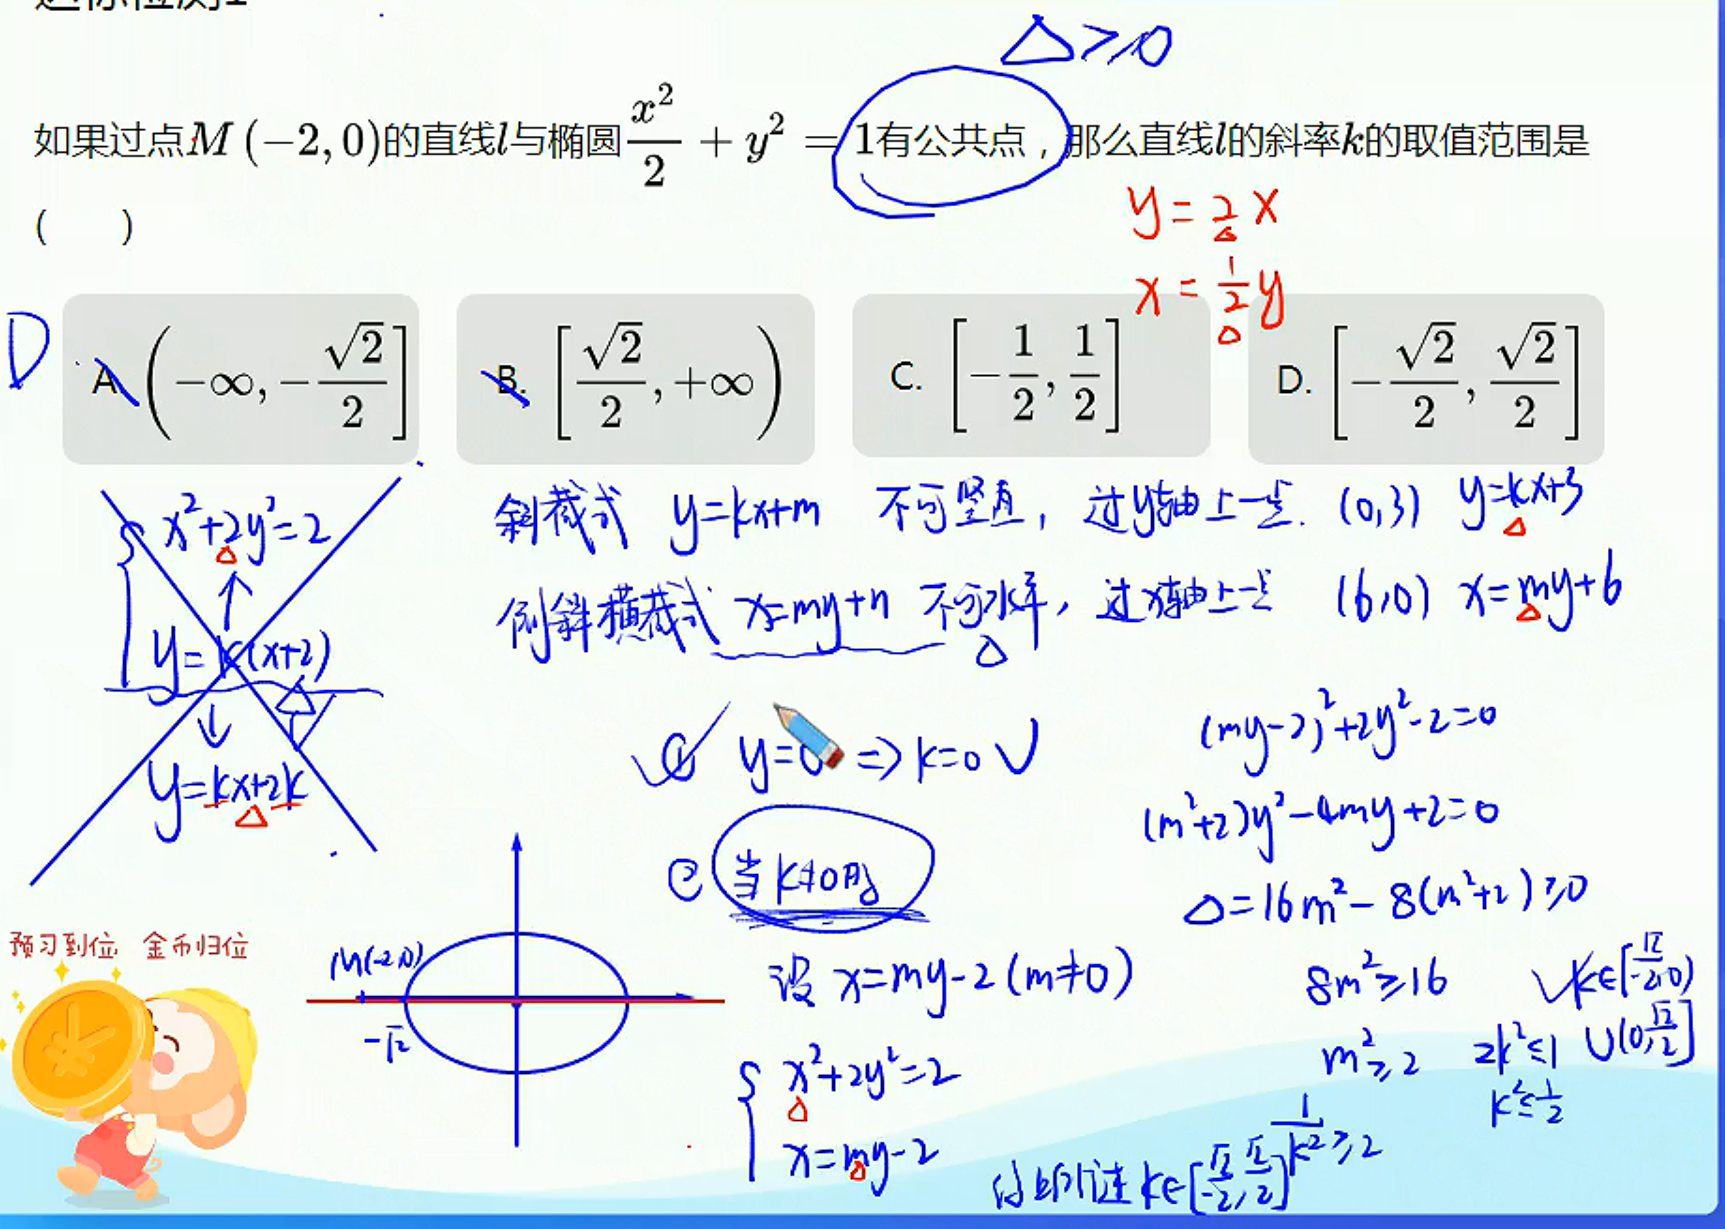 Δ≥0
如果过点M(-2,0)的直线l与椭圆x²/2+y²=1有公共点，那么直线l的斜率k的取值范围是
(　　)
y=2x
x=1/2y
D
A. (-∞,-√2/2]
B. [√2/2,+∞)
C. [-1/2,1/2]
D. [-√2/2,√2/2]
x²+2y²=2
y=k(x+2)
y=kx+2k
斜截式 y=kx+m 不可竖直，过y轴上一点. (0,3) y=kx+3
倒斜横截式 x=my+n 不可水平，过x轴上一点 (6,0) x=my+6
① y=0 => k=0 √
② 当k≠0时
设 x=my-2(m≠0)
x²+2y²=2
x=my-2
(my-2)²+2y²-2=0
(m²+2)y²-4my+2=0
Δ=16m²-8(m²+2)≥0
8m²≥16
m²≥2
1/k²≥2
2k²≤1
k²≤1/2
k∈[-√2/2,0)
∪(0,√2/2]
k∈[-√2/2,√2/2]
M(-2,0)
-√2
预习到位 金币归位